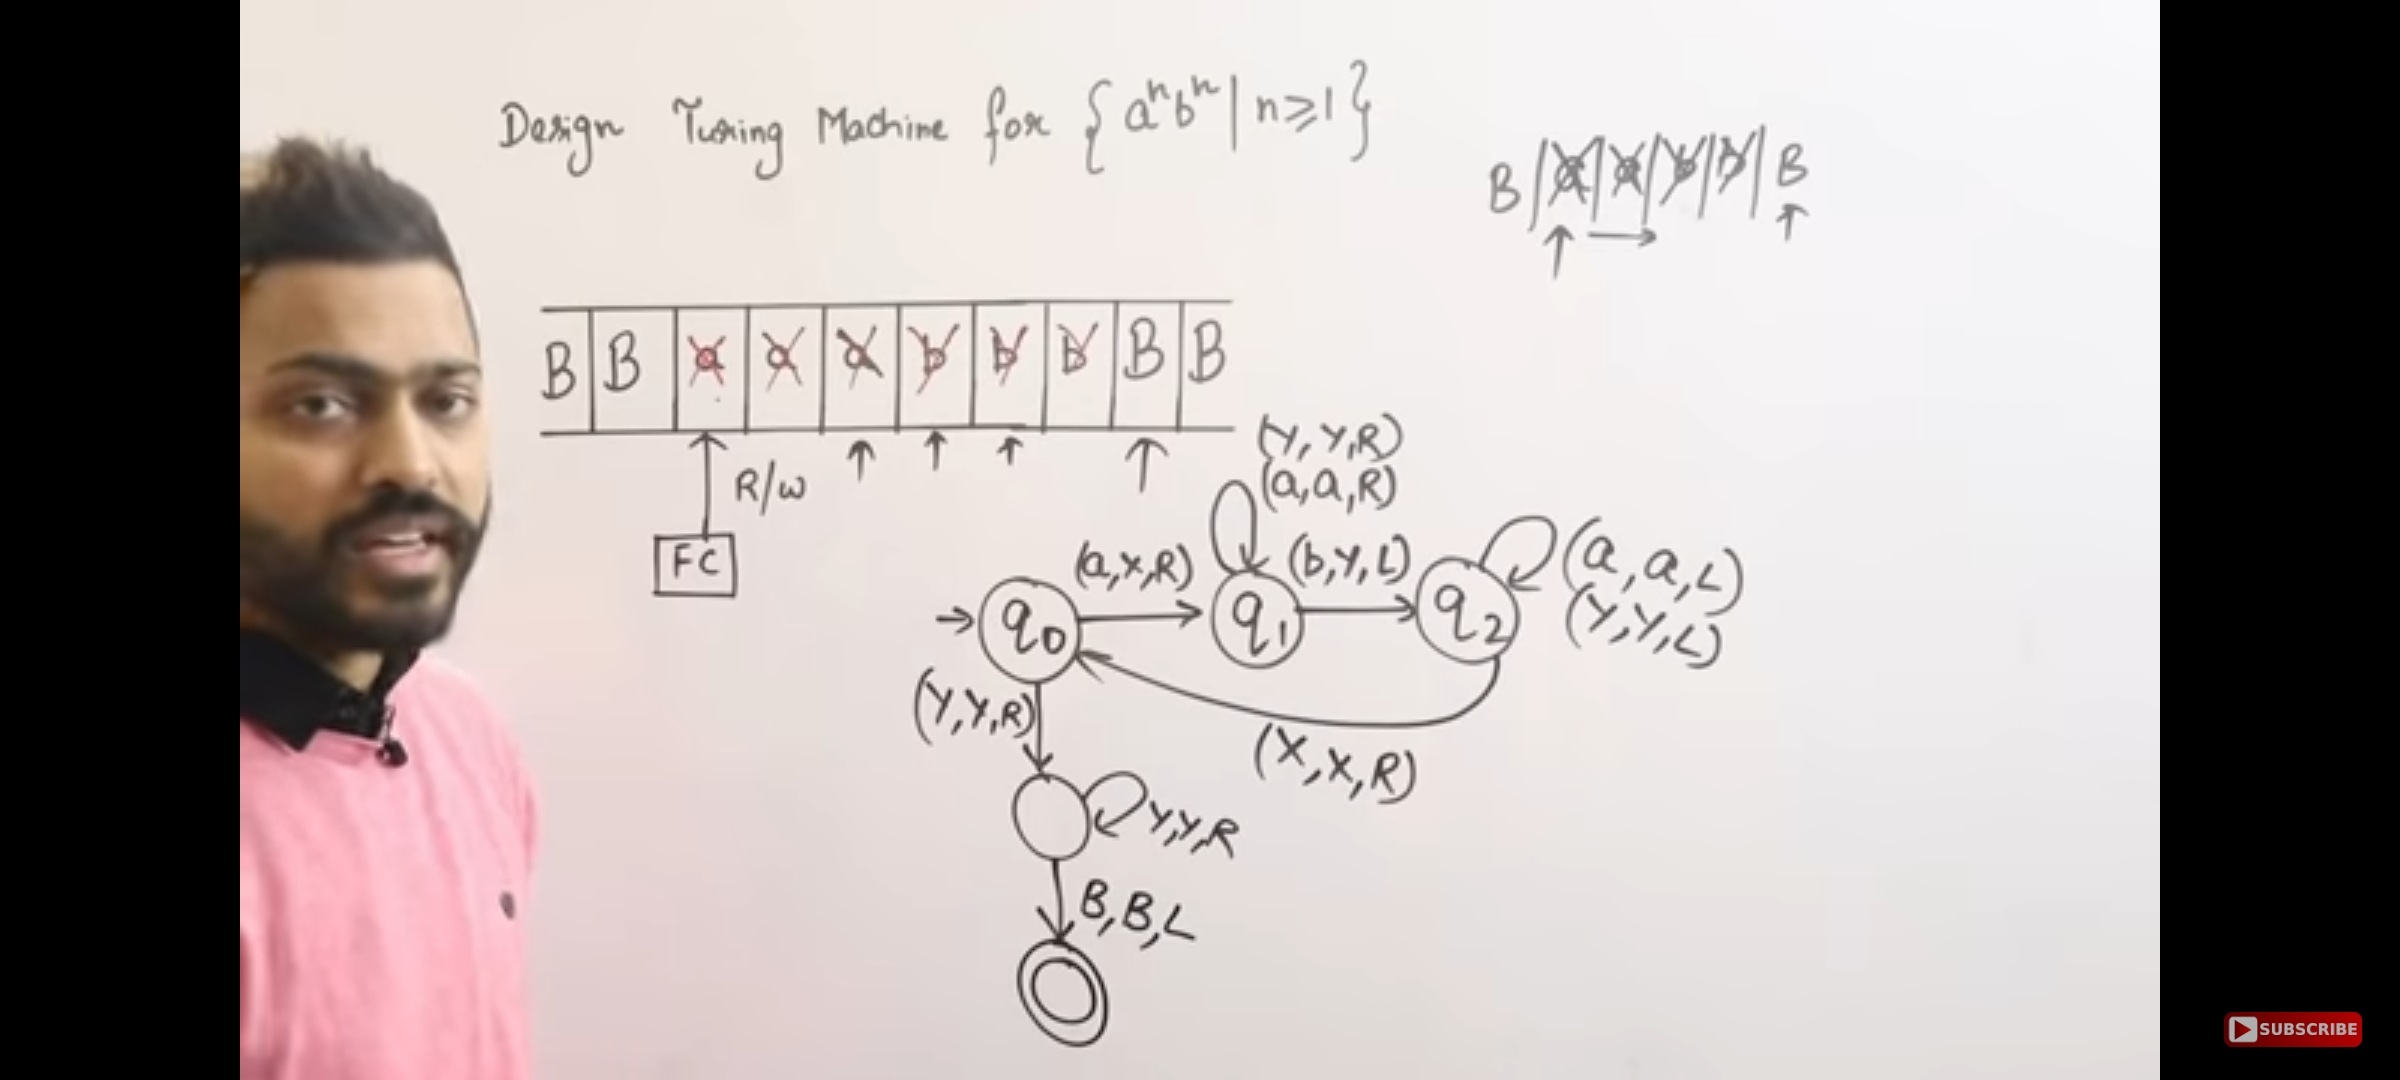 Design Turing Machine for {aⁿbⁿ | n≥1}
B a a b b B
B B a a a b b b B B
R/W
FC
(Y, Y, R)
(a, a, R)
(a, X, R)
(b, Y, L)
(a, a, L)
(Y, Y, L)
q0
q1
q2
(Y, Y, R)
(X, X, R)
Y, Y, R
B, B, L
SUBSCRIBE